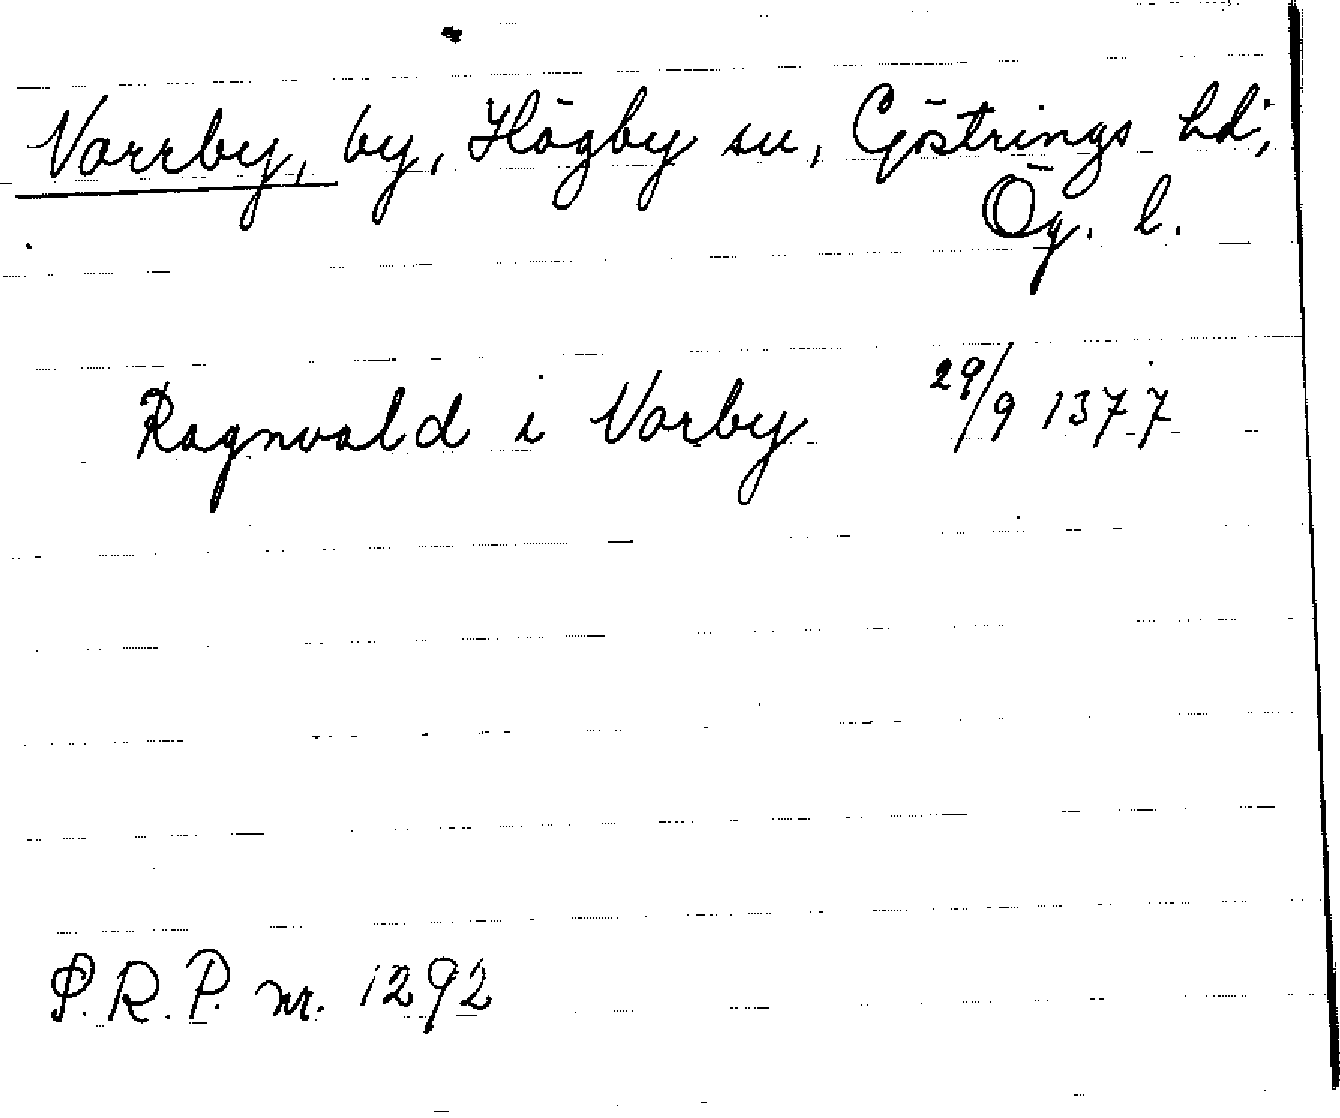 Varrby, by, Högby sn, Göstrings hd,
Ög. l.
Ragnvald i Varby 29/9 1377
P.R.P. nr. 1292